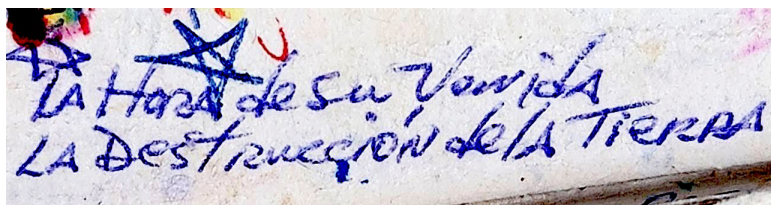 LA HORA de su Venida
LA DestRucción de lA TieRRA